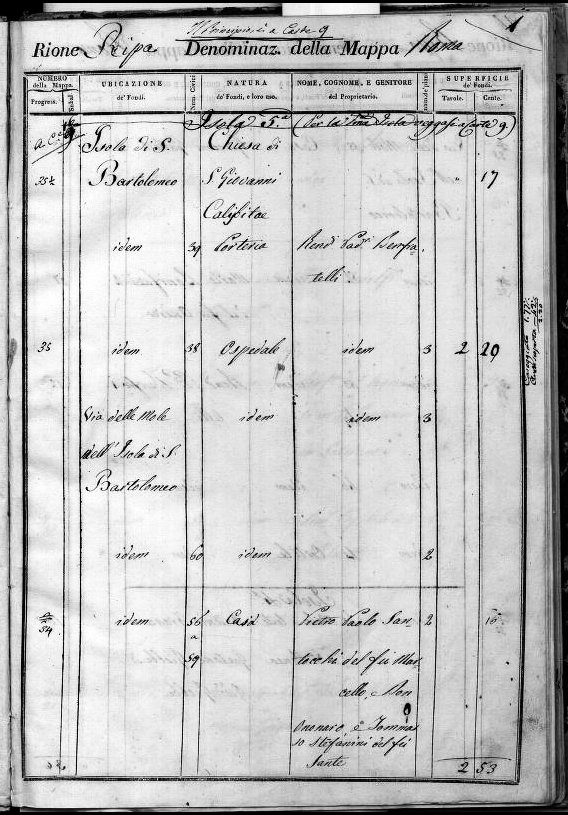 Il Principio è a Carte 9
1
Rione Ripa Denominaz. della Mappa Roma
NUMERO della Mappa. UBICAZIONE de' Fondi. NATURA de' Fondi, e loro uso. NOME, COGNOME, E GENITORE del Proprietario. SUPERFICIE de' Fondi.
Progress. Subal. Num. Civici Tavole. Cente.
Isola 5.a (Per la Pma Isola veggasi a Carte 9.
Isola di S. Chiesa di
35½ Bartolomeo S. Giovanni " 17
Calibitae
idem 39 Porteria Rendi Padri Benfra-
telli
35 idem 38 Ospedale idem 3 2 20
Via delle Mole idem idem 3
dell' Isola di S.
Bartolomeo
idem 60 idem 2
34 idem 56 Casa Pietro Paolo San- 2 16
a
59 tocchi del fu Mar-
cello, Bon
e Tommas
so Stefanini del fu
Sante
2 53